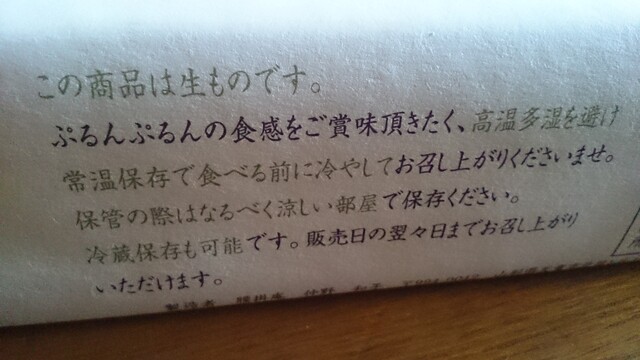 この商品は生ものです。
ぷるんぷるんの食感をご賞味頂きたく、高温多湿を避け
常温保存で食べる前に冷やしてお召し上がりくださいませ。
保管の際はなるべく涼しい部屋で保存ください。
冷蔵保存も可能です。販売日の翌々日までお召し上がり
いただけます。
製造者